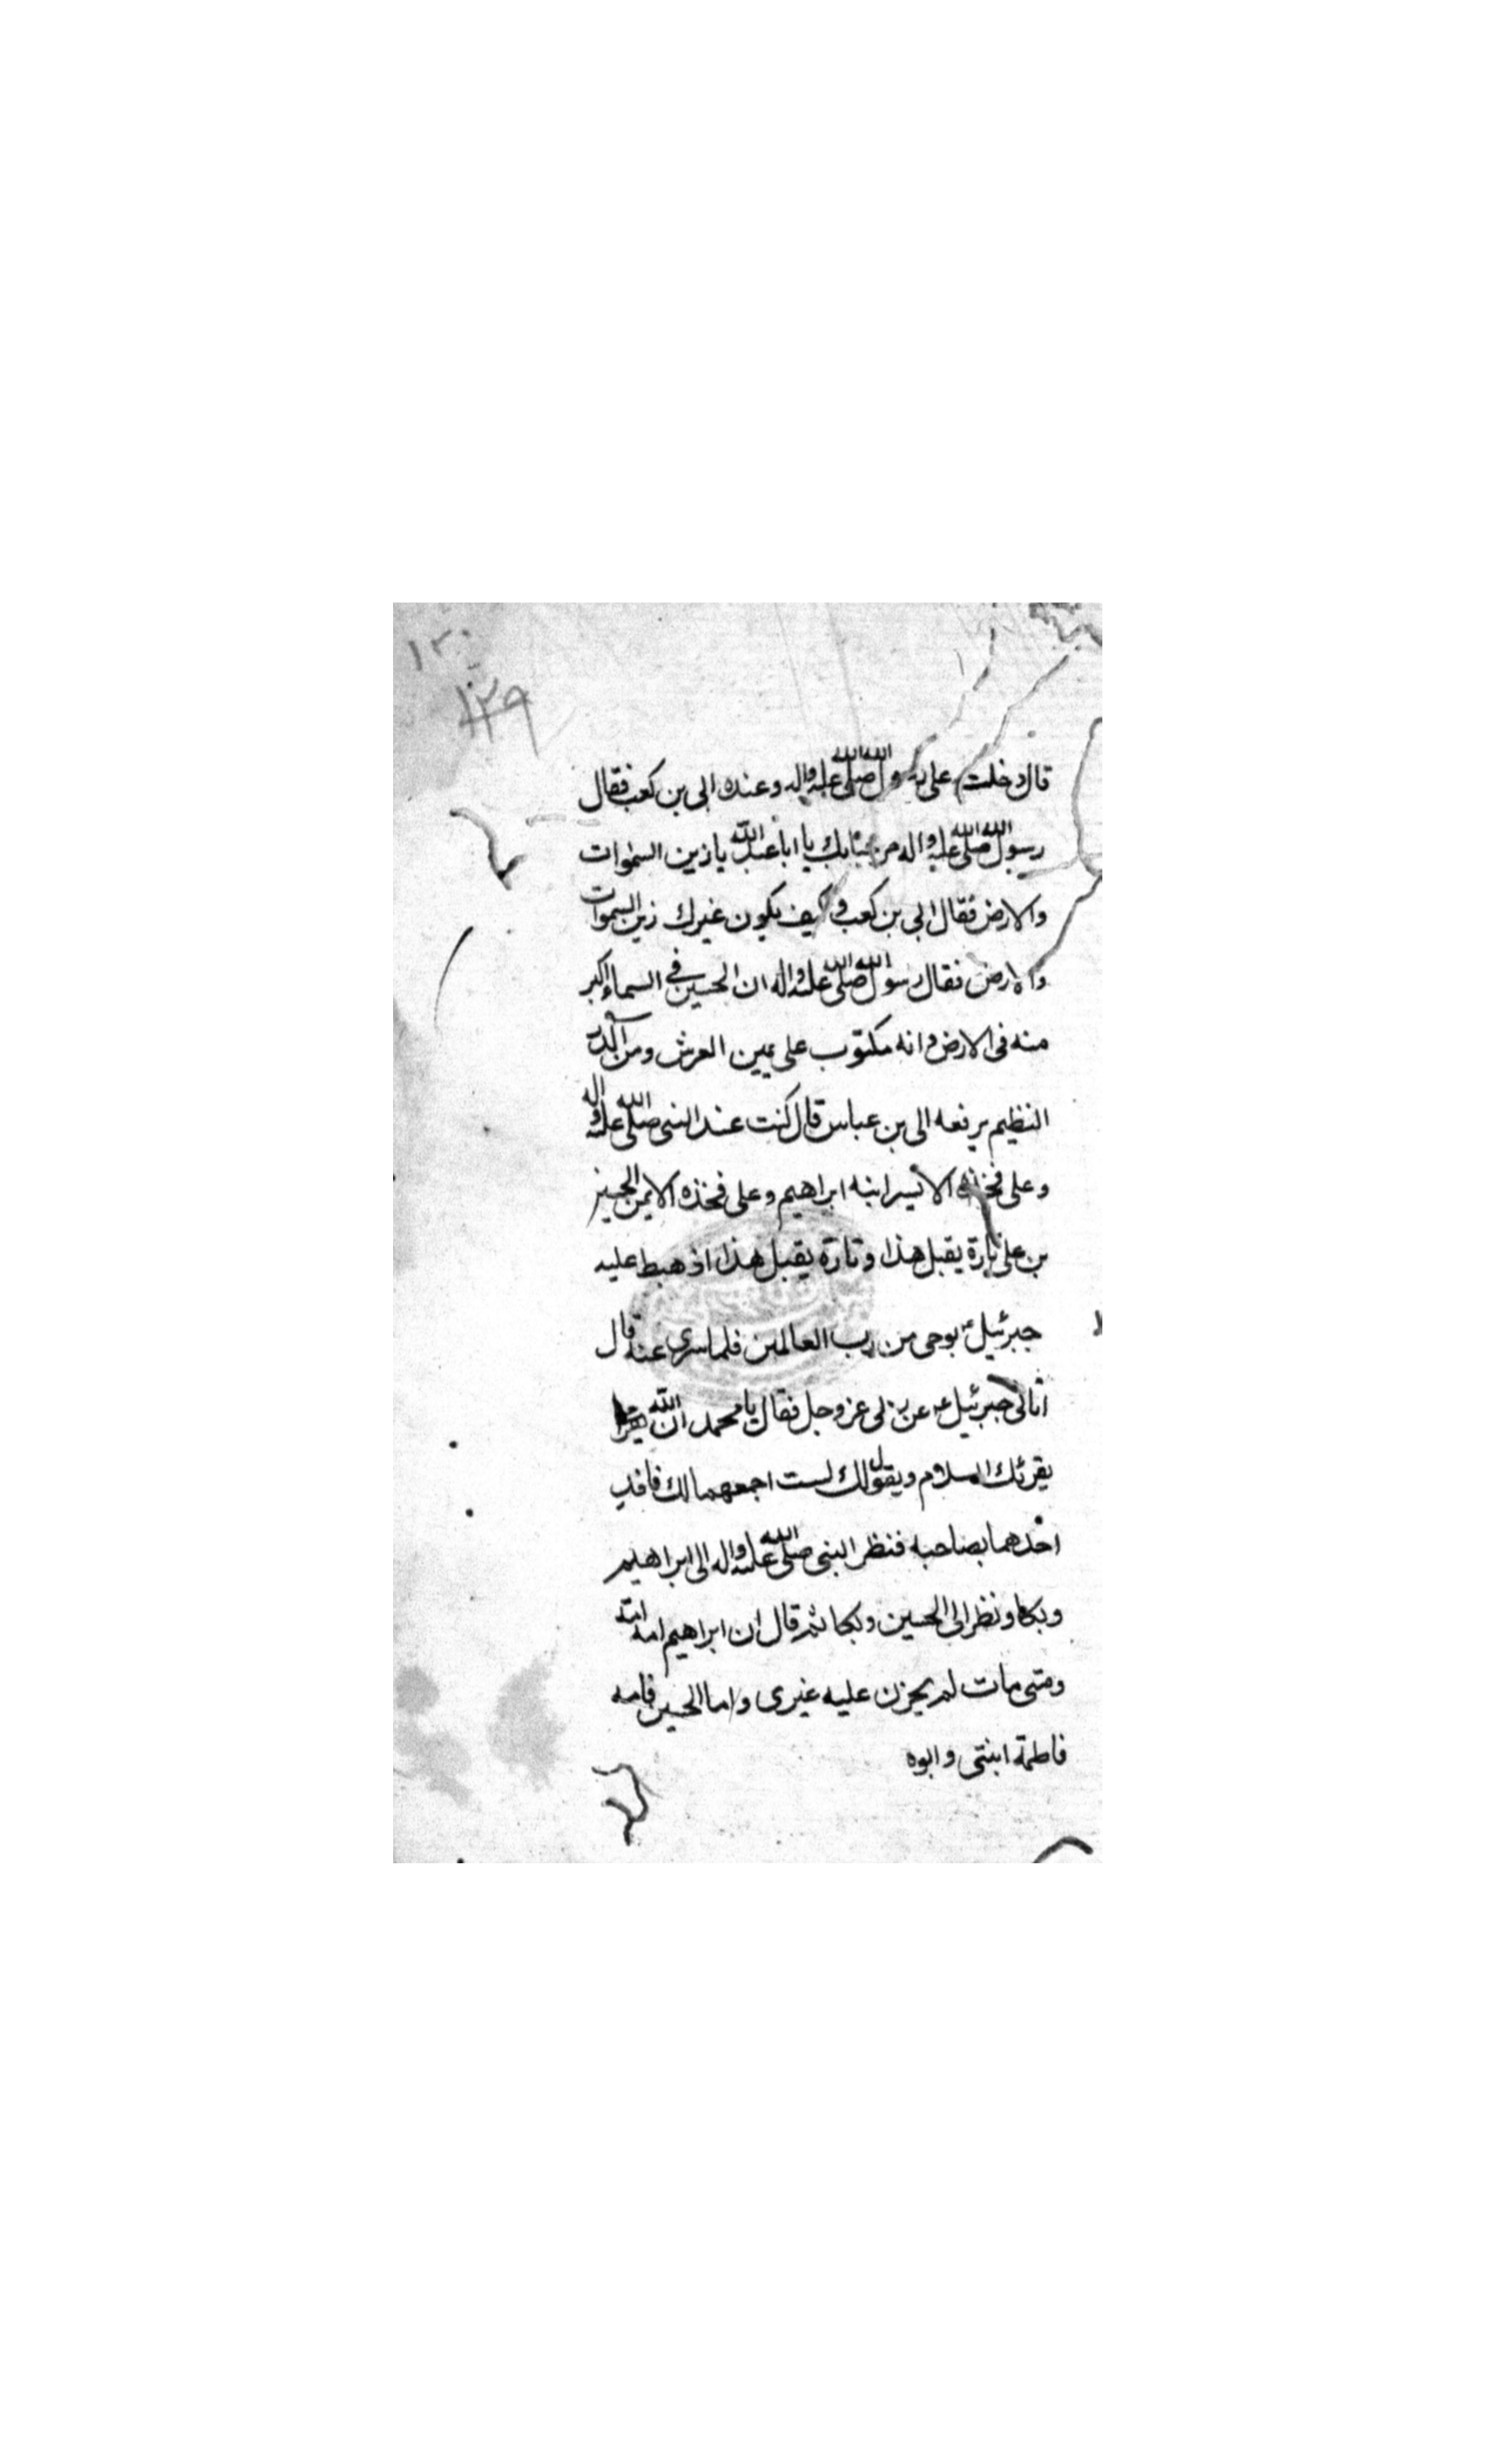 ١٣٠
١٢٩
قال دخلت على رسول الله صلى الله عليه واله وعنده ابى بن كعب فقال
رسول الله صلى الله عليه واله مرحبا بك يا ابا عبد الله يا زين السموات
والارض فقال ابى بن كعب وكيف يكون غيرك زين السموات
والارض فقال رسول الله صلى الله عليه واله ان الحسين في السماء اكبر
منه فى الارض وانه مكتوب على يمين العرش ومن الدر
النظيم يرفعه الى بن عباس قال كنت عند النبى صلى الله عليه واله
وعلى فخذه الايسر ابنه ابراهيم وعلى فخذه الايمن الحسين
بن على تارة يقبل هذا وتارة يقبل هذا اذ هبط عليه
جبرئيل ع بوحى من رب العالمين فلما سرى عنه قال
اتانى جبرئيل عن ربى عز وجل فقال يا محمد ان الله
يقرئك السلام ويقول لك لست اجمعهما لك فافد
احدهما بصاحبه فنظر النبى صلى الله عليه واله الى ابراهيم
وبكا ونظر الى الحسين وبكا ثم قال ان ابراهيم امه امة
ومتى مات لم يحزن عليه غيرى واما الحسين فامه
فاطمة ابنتى وابوه